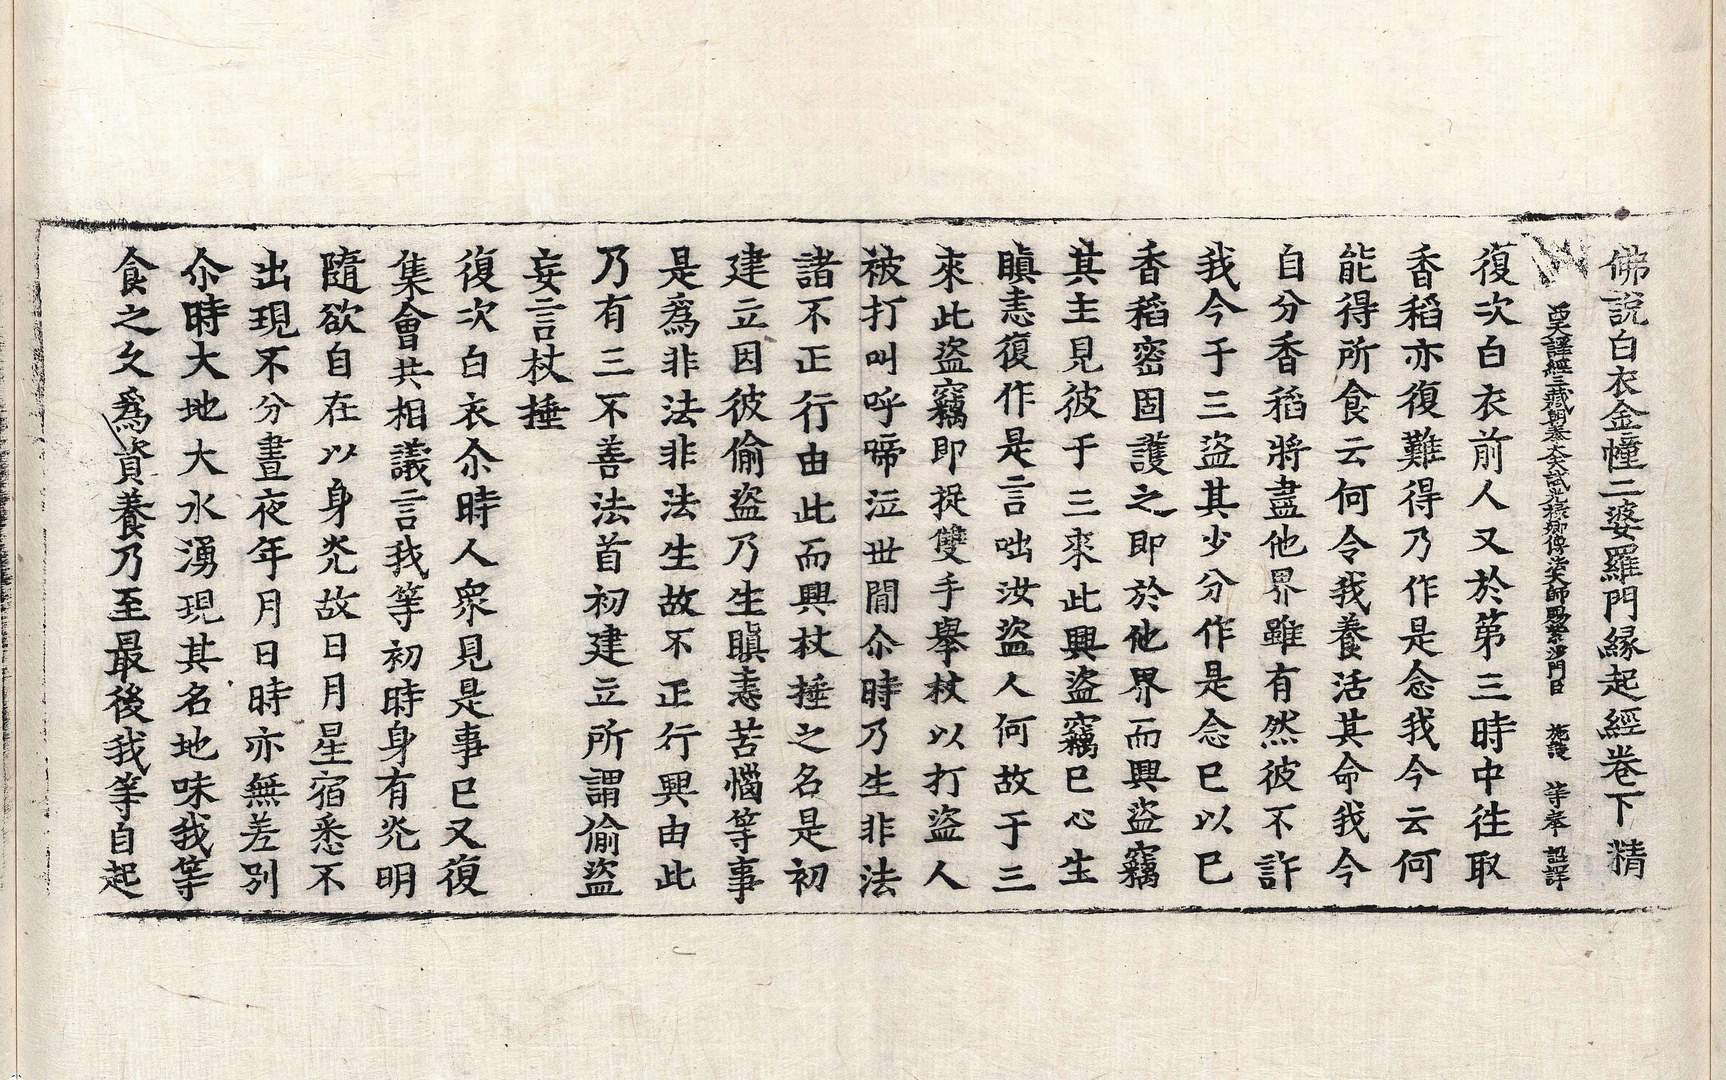 佛說白衣金幢二婆羅門緣起經卷下 精
西天譯經三藏朝奉大夫試光祿卿傳法大師賜紫沙門臣 施護 等奉 詔譯
復次白衣前人又於第三時中往取
香稻亦復難得乃作是念我今云何
能得所食云何令我養活其命我今
自分香稻將盡他界雖有然彼不許
我今于三盜其少分作是念已以已
香稻密固護之即於他界而興盜竊
其主見彼于三來此興盜竊已心生
瞋恚復作是言咄汝盜人何故于三
來此盜竊即捉雙手舉杖以打盜人
被打叫呼啼泣世間尒時乃生非法
諸不正行由此而興杖捶之名是初
建立因彼偷盜乃生瞋恚苦惱等事
是為非法非法生故不正行興由此
乃有三不善法首初建立所謂偷盜
妄言杖捶
復次白衣尒時人衆見是事已又復
集會共相議言我等初時身有光明
隨欲自在以身光故日月星宿悉不
出現不分晝夜年月日時亦無差別
尒時大地大水湧現其名地味我等
食之久為資養乃至最後我等自起